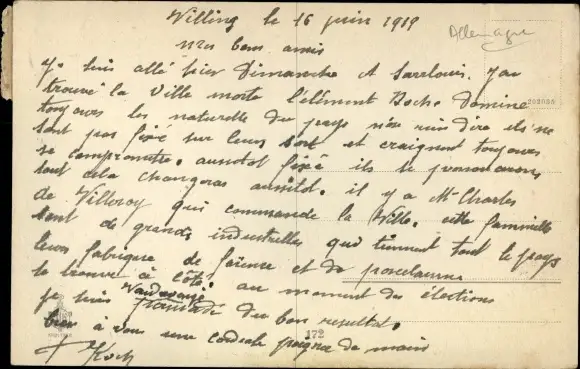 Willing le 16 juin 1919
Allemagne
Mes bons amis
Je suis allé hier Dimanche A Sarrlouis. J'ai
trouvé la Ville morte l'élément Boche Domine
toujours les naturelle du pays n'ose rien dire ils ne
sont pas fixé sur leurs sort et craignent toujours
se compromettre. aussitot fixé ils se prononceront
tout cela changeras aussitot. il y a Mr Charles
de Villeroy qui commande la Ville. cette famille
sont de grands industrielles qui tiennent tout le pays
leurs fabrique de faïence et de porcelaine
se trouve à côté. au moment des élections
je suis Vaudrevange du bon resultat.
bien à vous une cordiale poignée de main
172
Koch